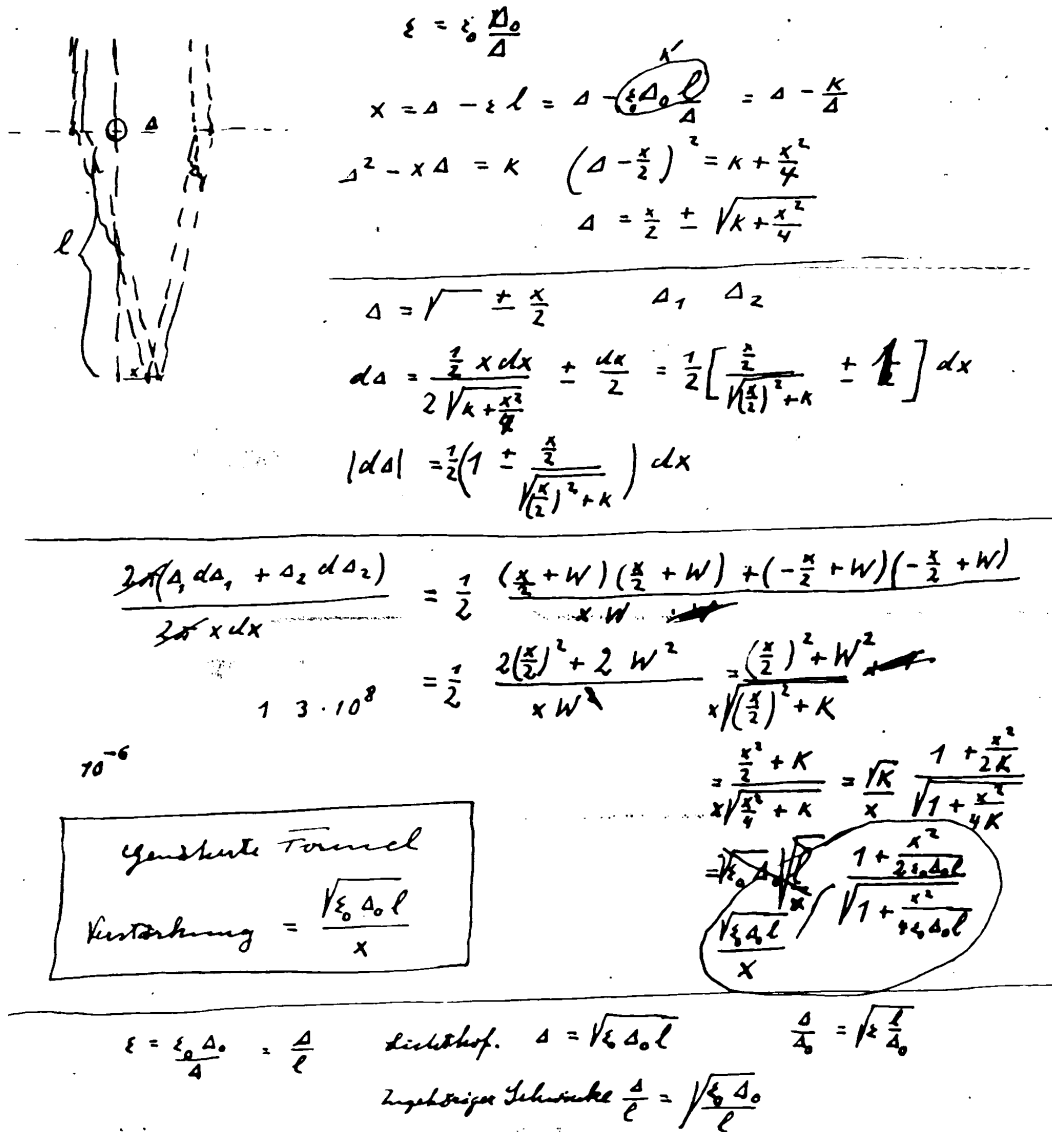 ε = ε₀ Δ₀/Δ
K
x = Δ − ε l = Δ − ε₀Δ₀ l/Δ = Δ − K/Δ
Δ
Δ² − xΔ = K (Δ − x/2)² = K + x²/4
Δ = x/2 ± √(K + x²/4)
l
x
Δ = √ ± x/2 Δ₁ Δ₂
dΔ = (½ x dx)/(2√(K + x²/4)) ± dx/2 = ½[(x/2)/√((x/2)² + K) ± 1] dx
|dΔ| = ½(1 ± (x/2)/√((x/2)² + K)) dx
2π(Δ₁dΔ₁ + Δ₂dΔ₂)/(2π x dx) = ½ ((x/2 + W)(x/2 + W) + (−x/2 + W)(−x/2 + W))/(x W)
= ½ (2(x/2)² + 2 W²)/(x W) = ((x/2)² + W²)/(x√((x/2)² + K))
1 3 · 10⁸
10⁻⁶
= (x²/2 + K)/(x√(x²/4 + K)) = √K/x (1 + x²/2K)/√(1 + x²/4K)
= √(ε₀Δ₀l)/x (1 + x²/(2ε₀Δ₀l))/√(1 + x²/(4ε₀Δ₀l))
Genäherte Formel
Verstärkung = √(ε₀ Δ₀ l)/x
ε = ε₀ Δ₀/Δ = Δ/l Lichthof. Δ = √(ε₀ Δ₀ l) Δ/Δ₀ = √(ε l/Δ₀)
Zugehöriger Sehwinkel Δ/l = √(ε₀ Δ₀/l)